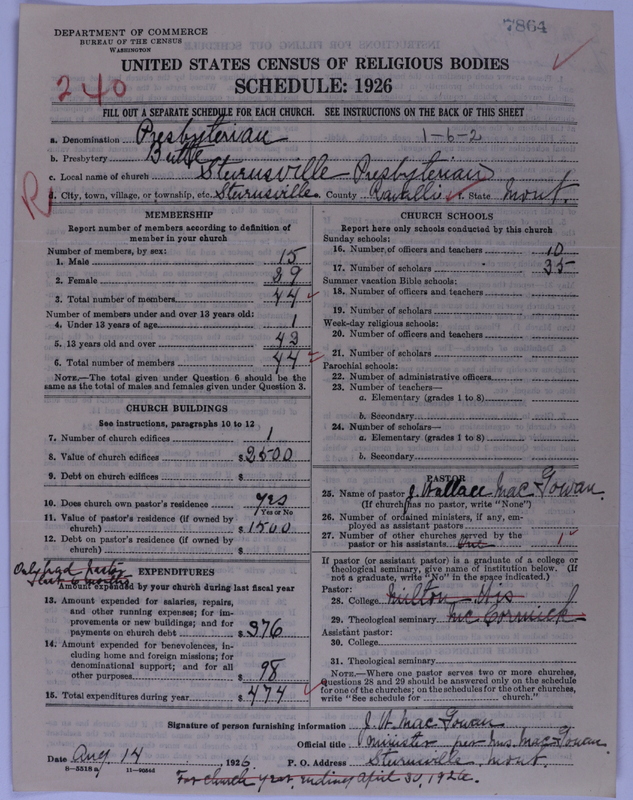 7864
DEPARTMENT OF COMMERCE
BUREAU OF THE CENSUS
WASHINGTON
UNITED STATES CENSUS OF RELIGIOUS BODIES
SCHEDULE: 1926
240
FILL OUT A SEPARATE SCHEDULE FOR EACH CHURCH. SEE INSTRUCTIONS ON THE BACK OF THIS SHEET
a. Denomination Presbyterian 1-6-2
b. Presbytery Butte
c. Local name of church Sturnsville Presbyterian
R
d. City, town, village, or township, etc. Sturnsville County Ravalli State Mont.
MEMBERSHIP
Report number of members according to definition of member in your church
Number of members, by sex:
1. Male 15
2. Female 29
3. Total number of members 44
Number of members under and over 13 years old:
4. Under 13 years of age 1
5. 13 years old and over 43
6. Total number of members 44
NOTE.—The total given under Question 6 should be the
same as the total of males and females given under Question 3.
CHURCH BUILDINGS
See instructions, paragraphs 10 to 12
7. Number of church edifices 1
8. Value of church edifices $2500
9. Debt on church edifices $
10. Does church own pastor's residence yes
Yes or No
11. Value of pastor's residence (if owned by
church) $1500
12. Debt on pastor's residence (if owned by
church) $
Only had pastor
last 6 months
EXPENDITURES
Amount expended by your church during last fiscal year
13. Amount expended for salaries, repairs,
and other running expenses; for im-
provements or new buildings; and for
payments on church debt $376
14. Amount expended for benevolences, in-
cluding home and foreign missions; for
denominational support; and for all
other purposes $98
15. Total expenditures during year $474
CHURCH SCHOOLS
Report here only schools conducted by this church
Sunday schools:
16. Number of officers and teachers 10
17. Number of scholars 35
Summer vacation Bible schools:
18. Number of officers and teachers
19. Number of scholars
Week-day religious schools:
20. Number of officers and teachers
21. Number of scholars
Parochial schools:
22. Number of administrative officers
23. Number of teachers—
a. Elementary (grades 1 to 8)
b. Secondary
24. Number of scholars—
a. Elementary (grades 1 to 8)
b. Secondary
PASTOR
25. Name of pastor J. Wallace MacGowan.
(If church has no pastor, write "None")
26. Number of ordained ministers, if any, em-
ployed as assistant pastors
27. Number of other churches served by the
pastor or his assistants one 1
If pastor (or assistant pastor) is a graduate of a college or
theological seminary, give name of institution below. (If
not a graduate, write "No" in the space indicated.)
Pastor:
28. College Milton Wis
29. Theological seminary McCormick
Assistant pastor:
30. College
31. Theological seminary
NOTE.—Where one pastor serves two or more churches,
questions 28 and 29 should be answered only on the schedule
for one of the churches; on the schedules for the other churches,
write "See schedule for church."
Signature of person furnishing information J. W. MacGowan
Official title minister per Mrs. MacGowan
Date Aug 14, 1926 P. O. Address Sturnsville Mont.
8—5518 a 11—9056d
For church year, ending April 30, 1926.